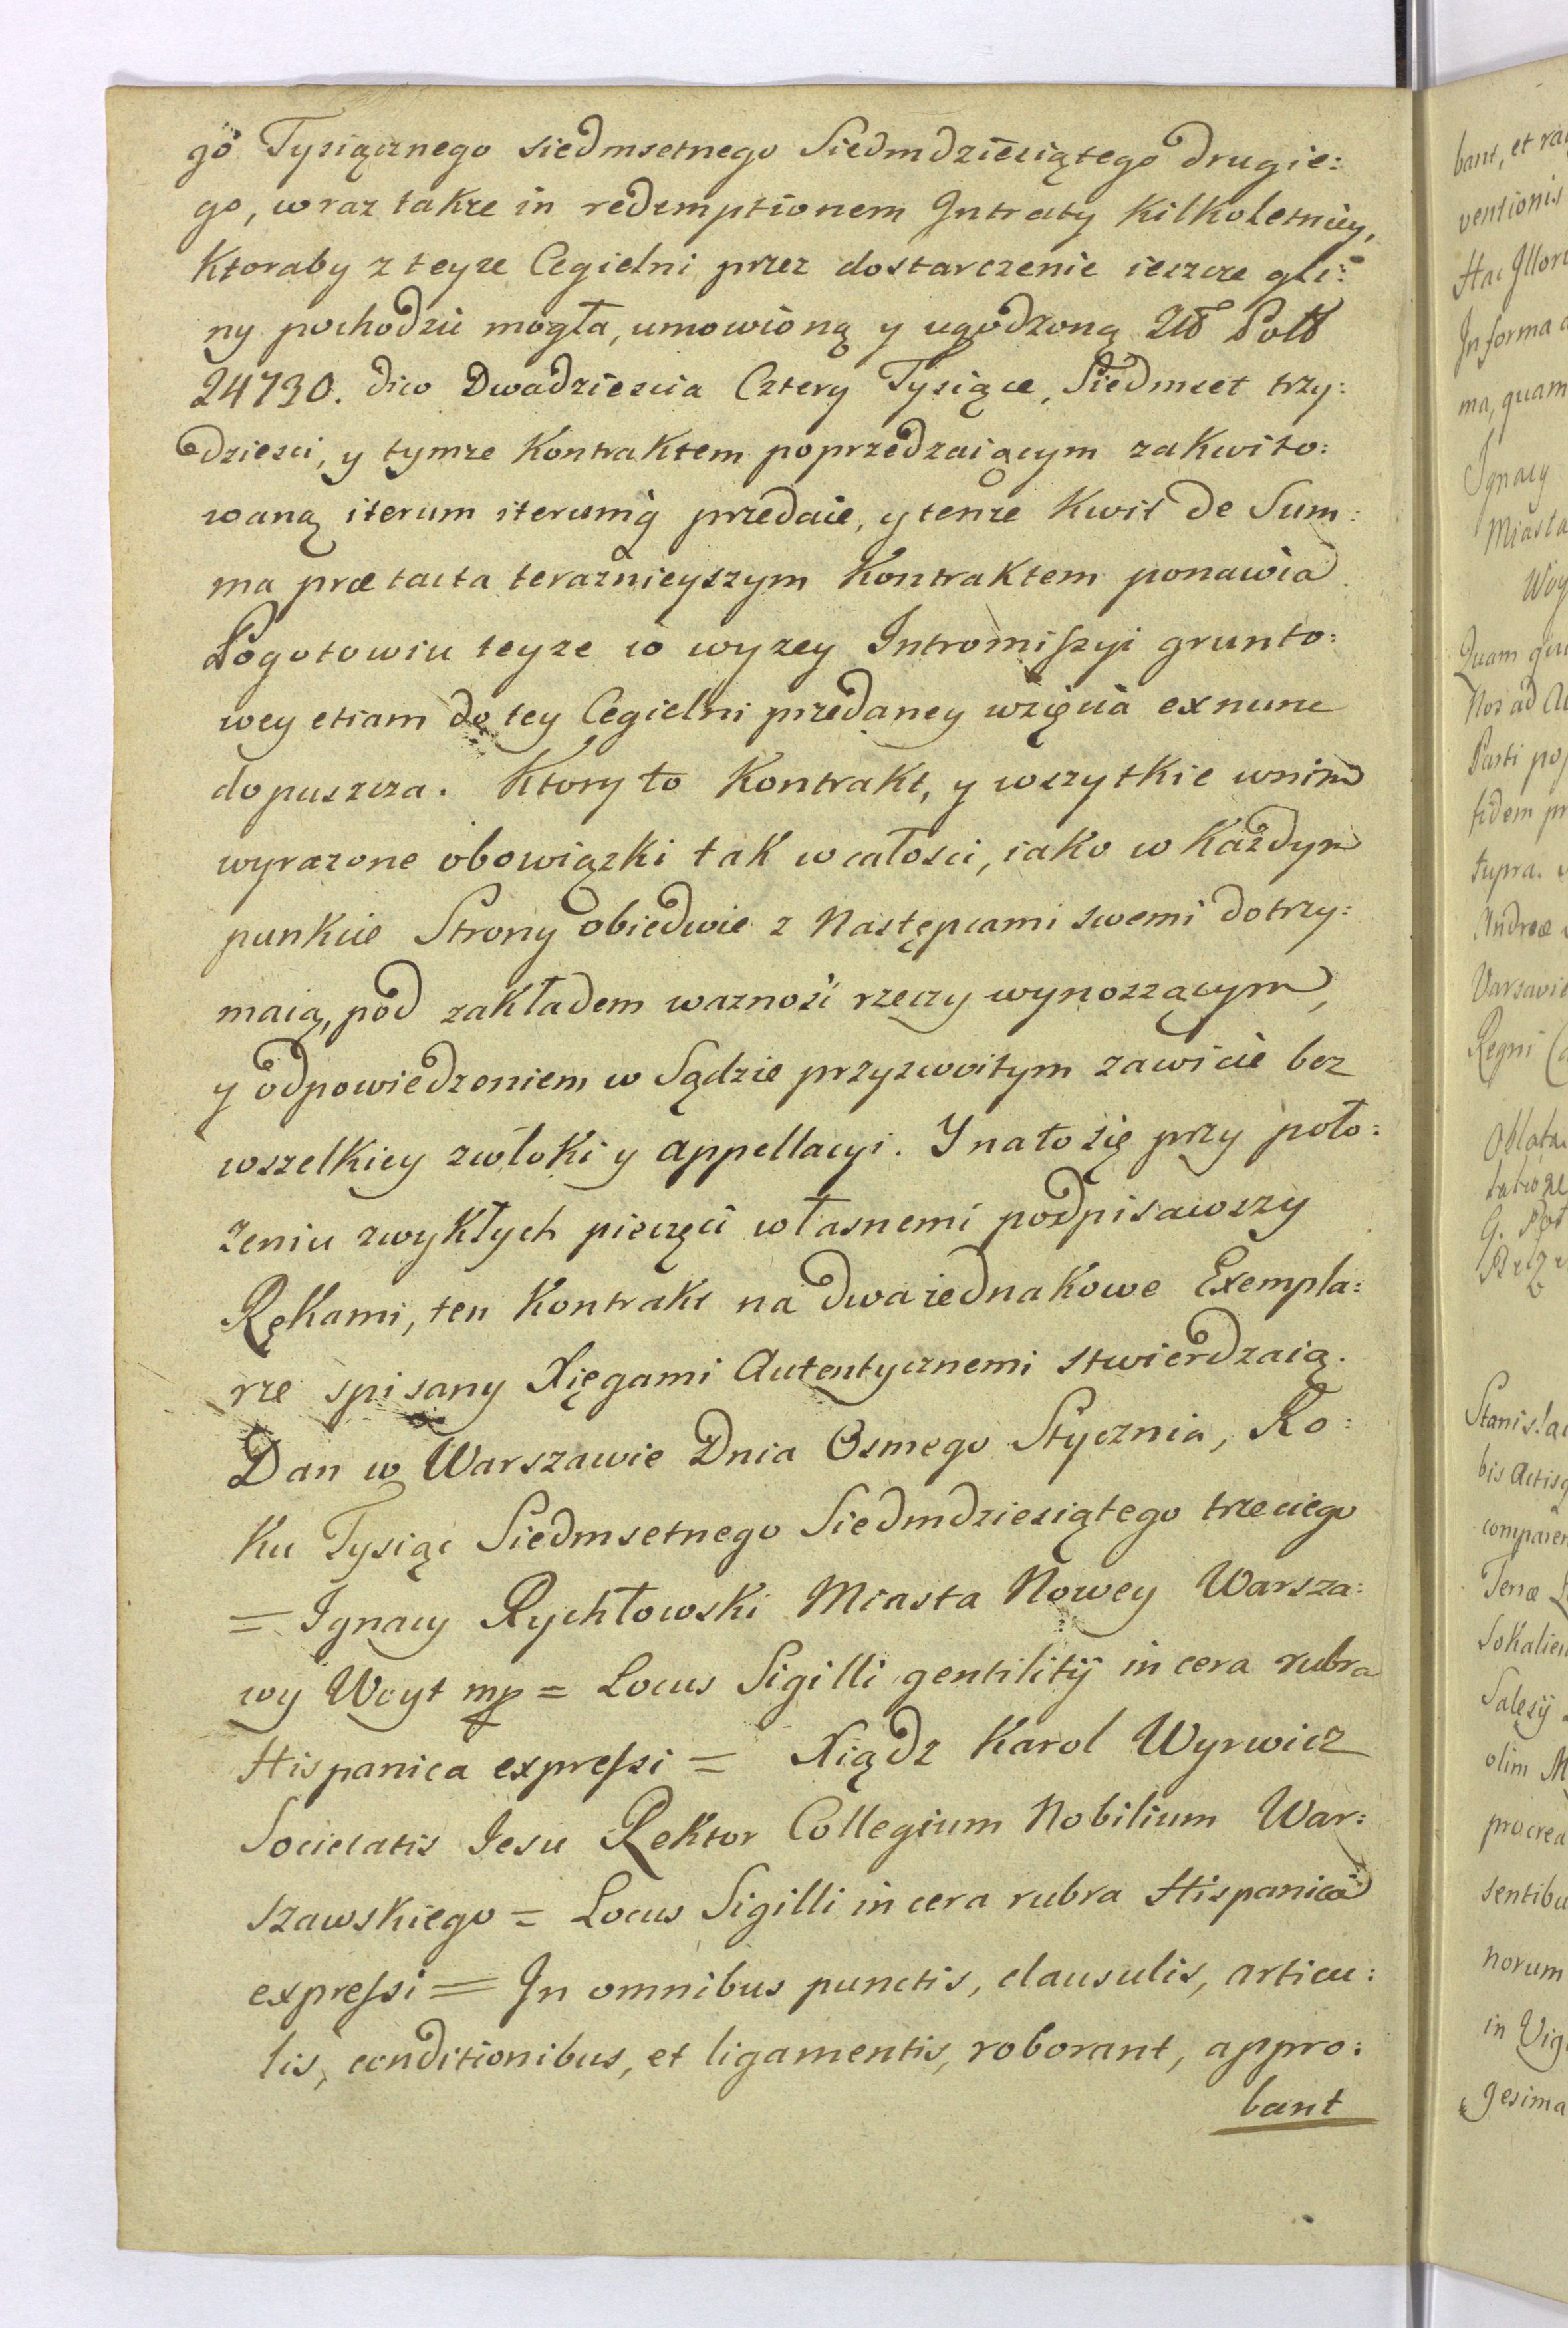 go Tysiącznego siedmsetnego Siedmdziesiątego drugie:
go, wraz takze in redemptionem Intraty kilkoletniey,
Ktoraby z teyze Cegielni przez dostarczenie ieszcze gli:
ny pochodzic mogła, umowioną y ugodzoną
24730. dico Dwadziescia Cztery Tysiące, Siedmset trzy:
dziesci, y tymze Kontraktem poprzedzaiącym zakwito:
waną iterum iterumq̀ przedaie, y tenze Kwit de Sum:
ma prætacta teraznieyszym Kontraktem ponawia.
Pogotowiu teyze co wyzey Intromissyi grunto:
wey etiam do tey Cegielni przedaney wzięcia exnunc
dopuszcza. Ktory to Kontrakt, y wszytkie wnim
wyrazone obowiązki tak wcałosci, iako w Każdym
punkcie Strony obiedwie z Następcami swemi dotrzy:
maią, pod zakładem waznosi rzeczy wynoszącym,
y odpowiedzeniem w Sądzie przyzwoitym zawicie bez
wszelkiey zwłoki y appellacyi. Y nato się przy poło:
żeniu zwykłych pieczęci własnemi podpisawszy
Rękami, ten Kontrakt na dwa iednakowe Exempla:
rze spisany Xięgami Autentycznemi stwierdzaią.
Dan w Warszawie Dnia Osmego Stycznia, Ro:
ku Tysiąc Siedmsetnego Siedmdziesiątego trzeciego
= Ignacy Rychłowski Miasta Nowey Warsza:
wy Woyt mp = Locus Sigilli gentilitÿ in cera rubra
Hispanica expressi = Xiądz Karol Wyrwicz
Societatis Iesu Rektor Collegium Nobilium War:
szawskiego = Locus Sigilli in cera rubra Hispanica
expressi = In omnibus punctis, clausulis, articu:
lis, conditionibus, et ligamentis, roborant, appro:
bant
bant, et
ventionis
Hac
In forma
ma, quam
Ignacy
Miasta
Quam
Nos ad
Parti
fidem
Andreæ
Regni
Oblata
bis
Terræ
olim
procrea
sentibu
norum
in
gesima